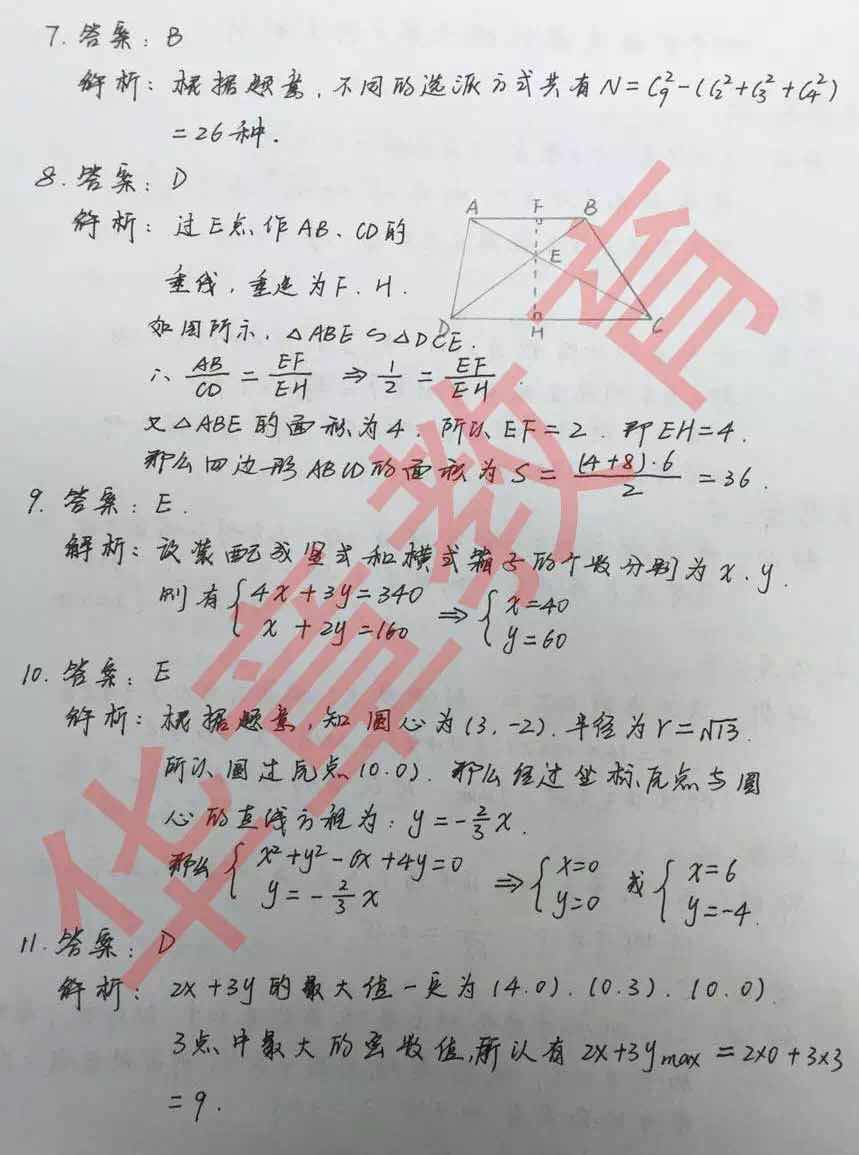 7. 答案：B
解析：根据题意，不同的选派方式共有 N = C₉² - (C₂² + C₃² + C₄²)
= 26 种.
8. 答案：D
解析：过E点作AB、CD的
垂线，垂足为F、H.
A F B
E
D H C
如图所示，△ABE ∽ △DCE.
∴ AB/CD = EF/EH ⇒ 1/2 = EF/EH .
又△ABE的面积为4，所以EF=2. 即EH=4.
那么四边形ABCD的面积为 S = (4+8)·6/2 = 36.
9. 答案：E.
解析：设装配成竖式和横式箱子的个数分别为 x、y.
则有 { 4x + 3y = 340
x + 2y = 160 ⇒ { x = 40
y = 60
10. 答案：E
解析：根据题意，知圆心为 (3, -2). 半径为 r = √13.
所以圆过原点 (0.0). 那么经过坐标原点与圆
心的直线方程为：y = -2/3 x.
那么 { x² + y² - 6x + 4y = 0
y = -2/3 x ⇒ { x=0
y=0 或 { x=6
y=-4.
11. 答案：D
解析：2x+3y 的最大值一定为 (4.0). (0.3). (0.0).
3点中最大的函数值，所以有 2x+3y max = 2×0+3×3
= 9.
华章教育